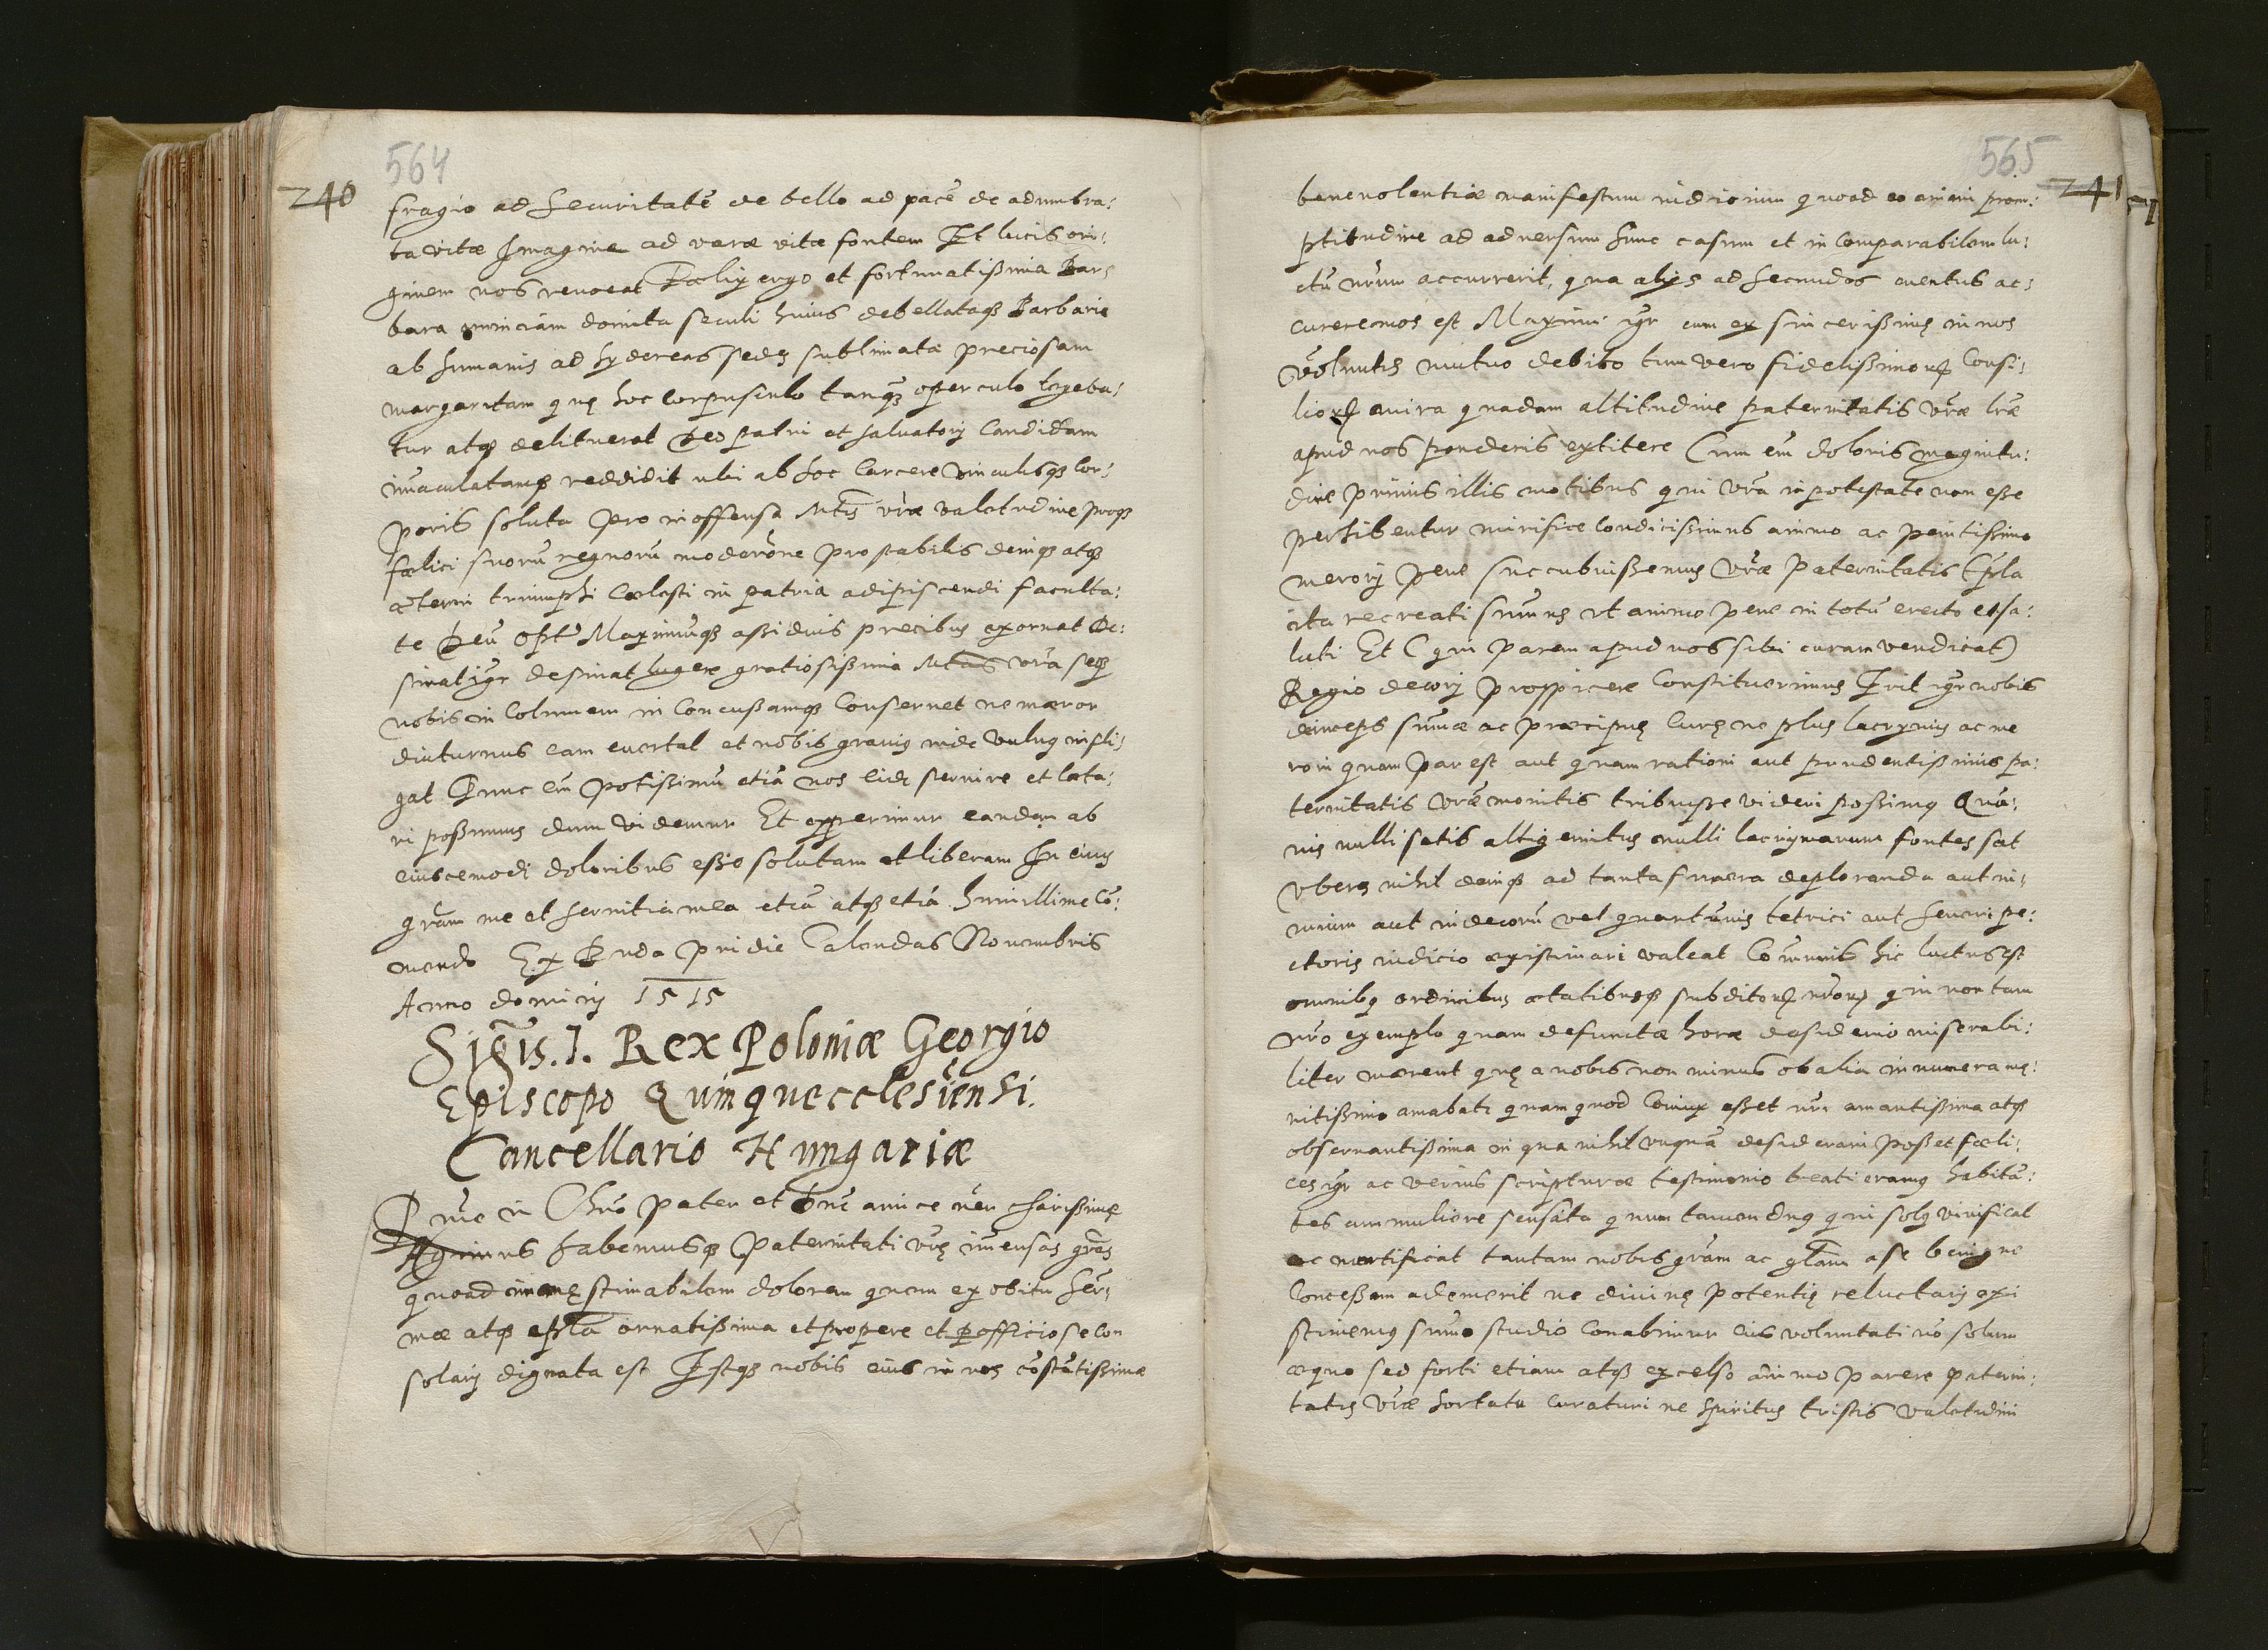 564
240
fragio ad securitatē de bello ad pacē de adumbra:
ta vitæ Imagine ad veræ vitæ fontem Et lucis ori:
ginem nos revocat Fælix ergo et fortunatißima Bar:
bara domita seculi huius debellataqꝫ Barbarie
ab humanis ad sydereas sedes sublimata preciosam
margaritam quę hoc corpusculo tanqꝫ operculo tegeba:
tur atqꝫ delituerat Deo patri et salvatory candidam
im̄aculatamqꝫ reddidit ubi ab hoc carcere vinculisqꝫ cor:
poris soluta pro inoffensa Mtis vr̄æ valetudine proqꝫ
fælici suorū regnorū moderōne pro stabilis deniqꝫ atqꝫ
æterni triumphi cœlesti in patria adipiscendi faculta:
te Deū Opt Maximūqꝫ assiduis precibus exornat De:
sinat igr̄ desinat lugere gratiosißima Mtas vr̄a seqꝫ
nobis in columem in concußamqꝫ conservet ne mæror
diuturnus eam evertat et nobis gravis inde vulnus infli:
gat Tunc em̄ potißimū etiā nos eidē servire et læta:
ri poßumus dum videmur Et opperimur eandem ab
eiuscemodi doloribus esse solutam et liberam In eius
gr̄am me et servitia mea etiā atqꝫ etiā humillime cō:
mendo Ex Buda pridie Calendas Novembris
Anno dominy 1515
Sigis. I. Rex Poloniæ Georgio
Episcopo Quinquecclesiensi.
Cancellario Hungariæ
Rn̄e in Chr̄o pater et Dn̄e amice nr̄ charissime
habemusqꝫ Paternitati vr̄ę im̄ensas gr̄as
quoad stimabilem dolorem quem ex obitu Ser:
mæ atqꝫ epl̄a ornatißima et propere et officiose con
solary dignata est Estqꝫ nobis eius in nos cōstātißimæ
565
241
benevolentiæ manifestum indicium quoad ea animi prom:
ptitudine ad adversum hunc casum et in comparabilem lu:
ctū nr̄um accurrerit, qua alijs ad secundos eventus ac:
currere mos est Maximi igr̄ cum ex sincerißimis in nos
volūntis mutuo debito tum vero fidelißimorꝝ consi:
liorꝝ mira quadam altitudine paternitatis vr̄æ lr̄æ
apud nos ponderis extitere Cum em̄ doloris magnitu:
dine primis illis motibus qui vr̄a in potestate non eße
perhibentur mirifice animo ac penitißimo
merory pene succubuißemus vr̄æ Paternitatis Epl̄a
ita recreati sumus ut animo pene in totū erecto et sa:
luti Et (qui parem apud nos sibi curam vendicat)
Regio decory prospicere constituerimus Erit igr̄ nobis
deinceps sum̄æ ac præcipuę curę ne plus lacrymis ac me
rori quam par est aut quam rationi aut prudentißimis pa:
ternitatis vr̄æ monitis tribuiße videri poßimus Qua:
vis nulli satis alti gemitus nulli lacrymarum fontes sat
uberes nihil deniqꝫ ad tanta funera deploranda aut ni:
mium aut indecorū vel quantumvis tetrici aut severi pe:
ctoris iudicio existimari valeat Com̄unis hic luctus est
omnibus ordinibus ætatibusqꝫ subditorꝝ nr̄orꝝ qui non tam
nr̄o exemplo quam defunctæ heræ desiderio miserabi:
liter mærent quę a nobis non minus ob alia in numera me:
ritißimo amabatr quam quod coniux eßet nr̄i amantißima atqꝫ
observantißima in qua nihil unquā desiderari poßet fæli:
ces igr̄ ac verius scripturæ testimonio beati eramus habitā:
tes cum muliere sensata quam tamen dn̄s qui solus vivificat
ac mortificat tantam nobis gr̄am ac gl̄am a se benigne
conceßam ademerit ne divinę potentię reluctary exi
stimemus sum̄o studio conabimur eius voluntati nō solum
æquo sed forti etiam atqꝫ excelso animo parere paterni:
tatis vr̄æ hortatu curaturi ne spiritus tristis valetudini